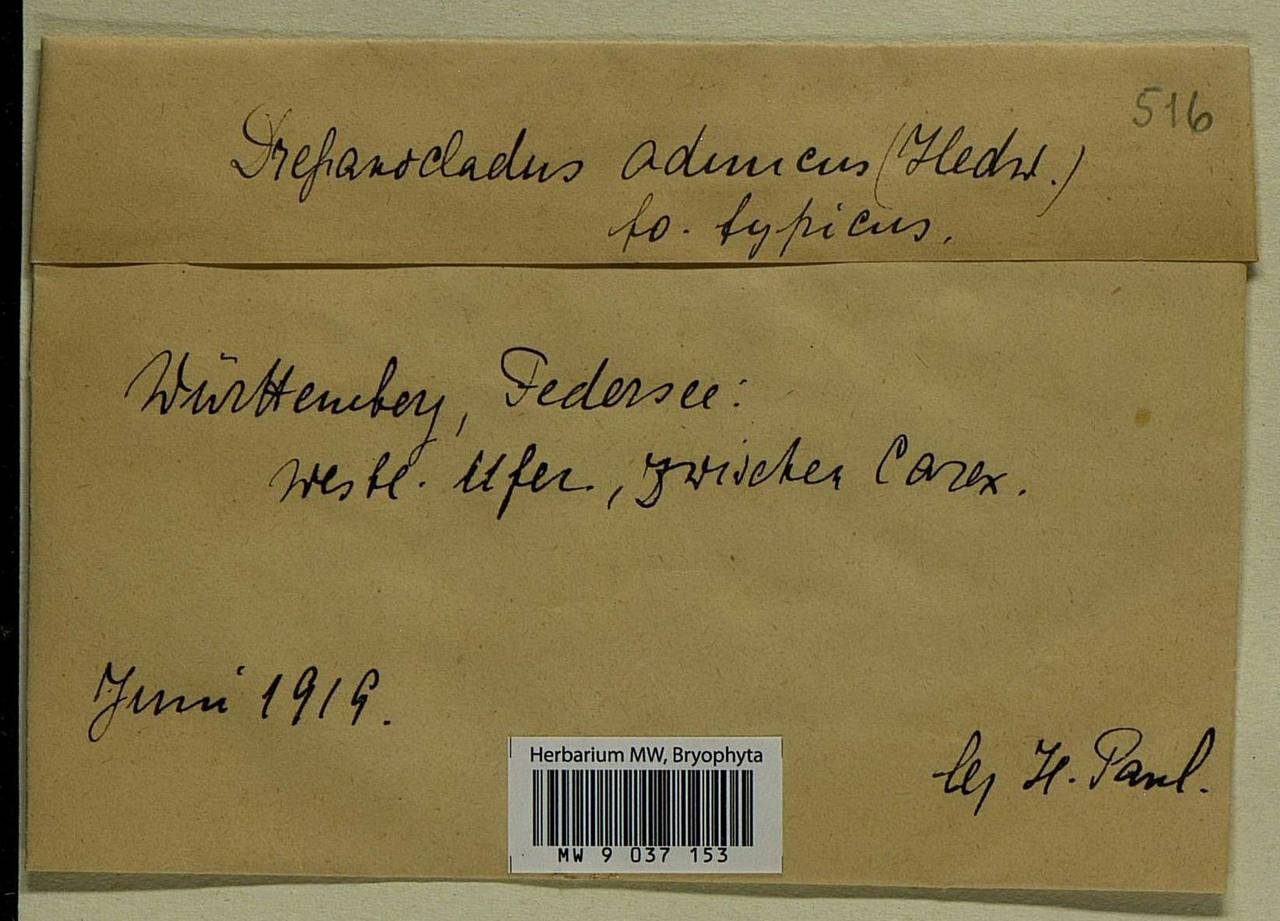 516
Drepanocladus aduncus (Hedw.)
fo. typicus.
Württemberg, Federsee:
westl. Ufer, zwischen Carex.
Juni 1919.
leg H. Paul.
Herbarium MW, Bryophyta
MW 9 037 153